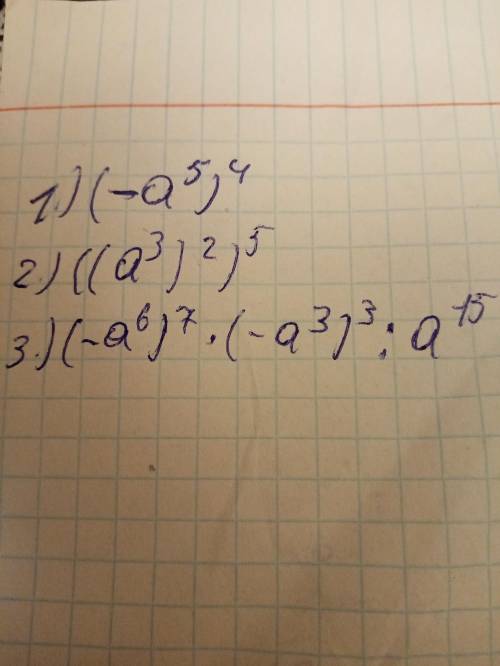 1.) (-a⁵)⁴
2.) ((a³)²)⁵
3.) (-a⁶)⁷ · (-a³)³ : a¹⁵